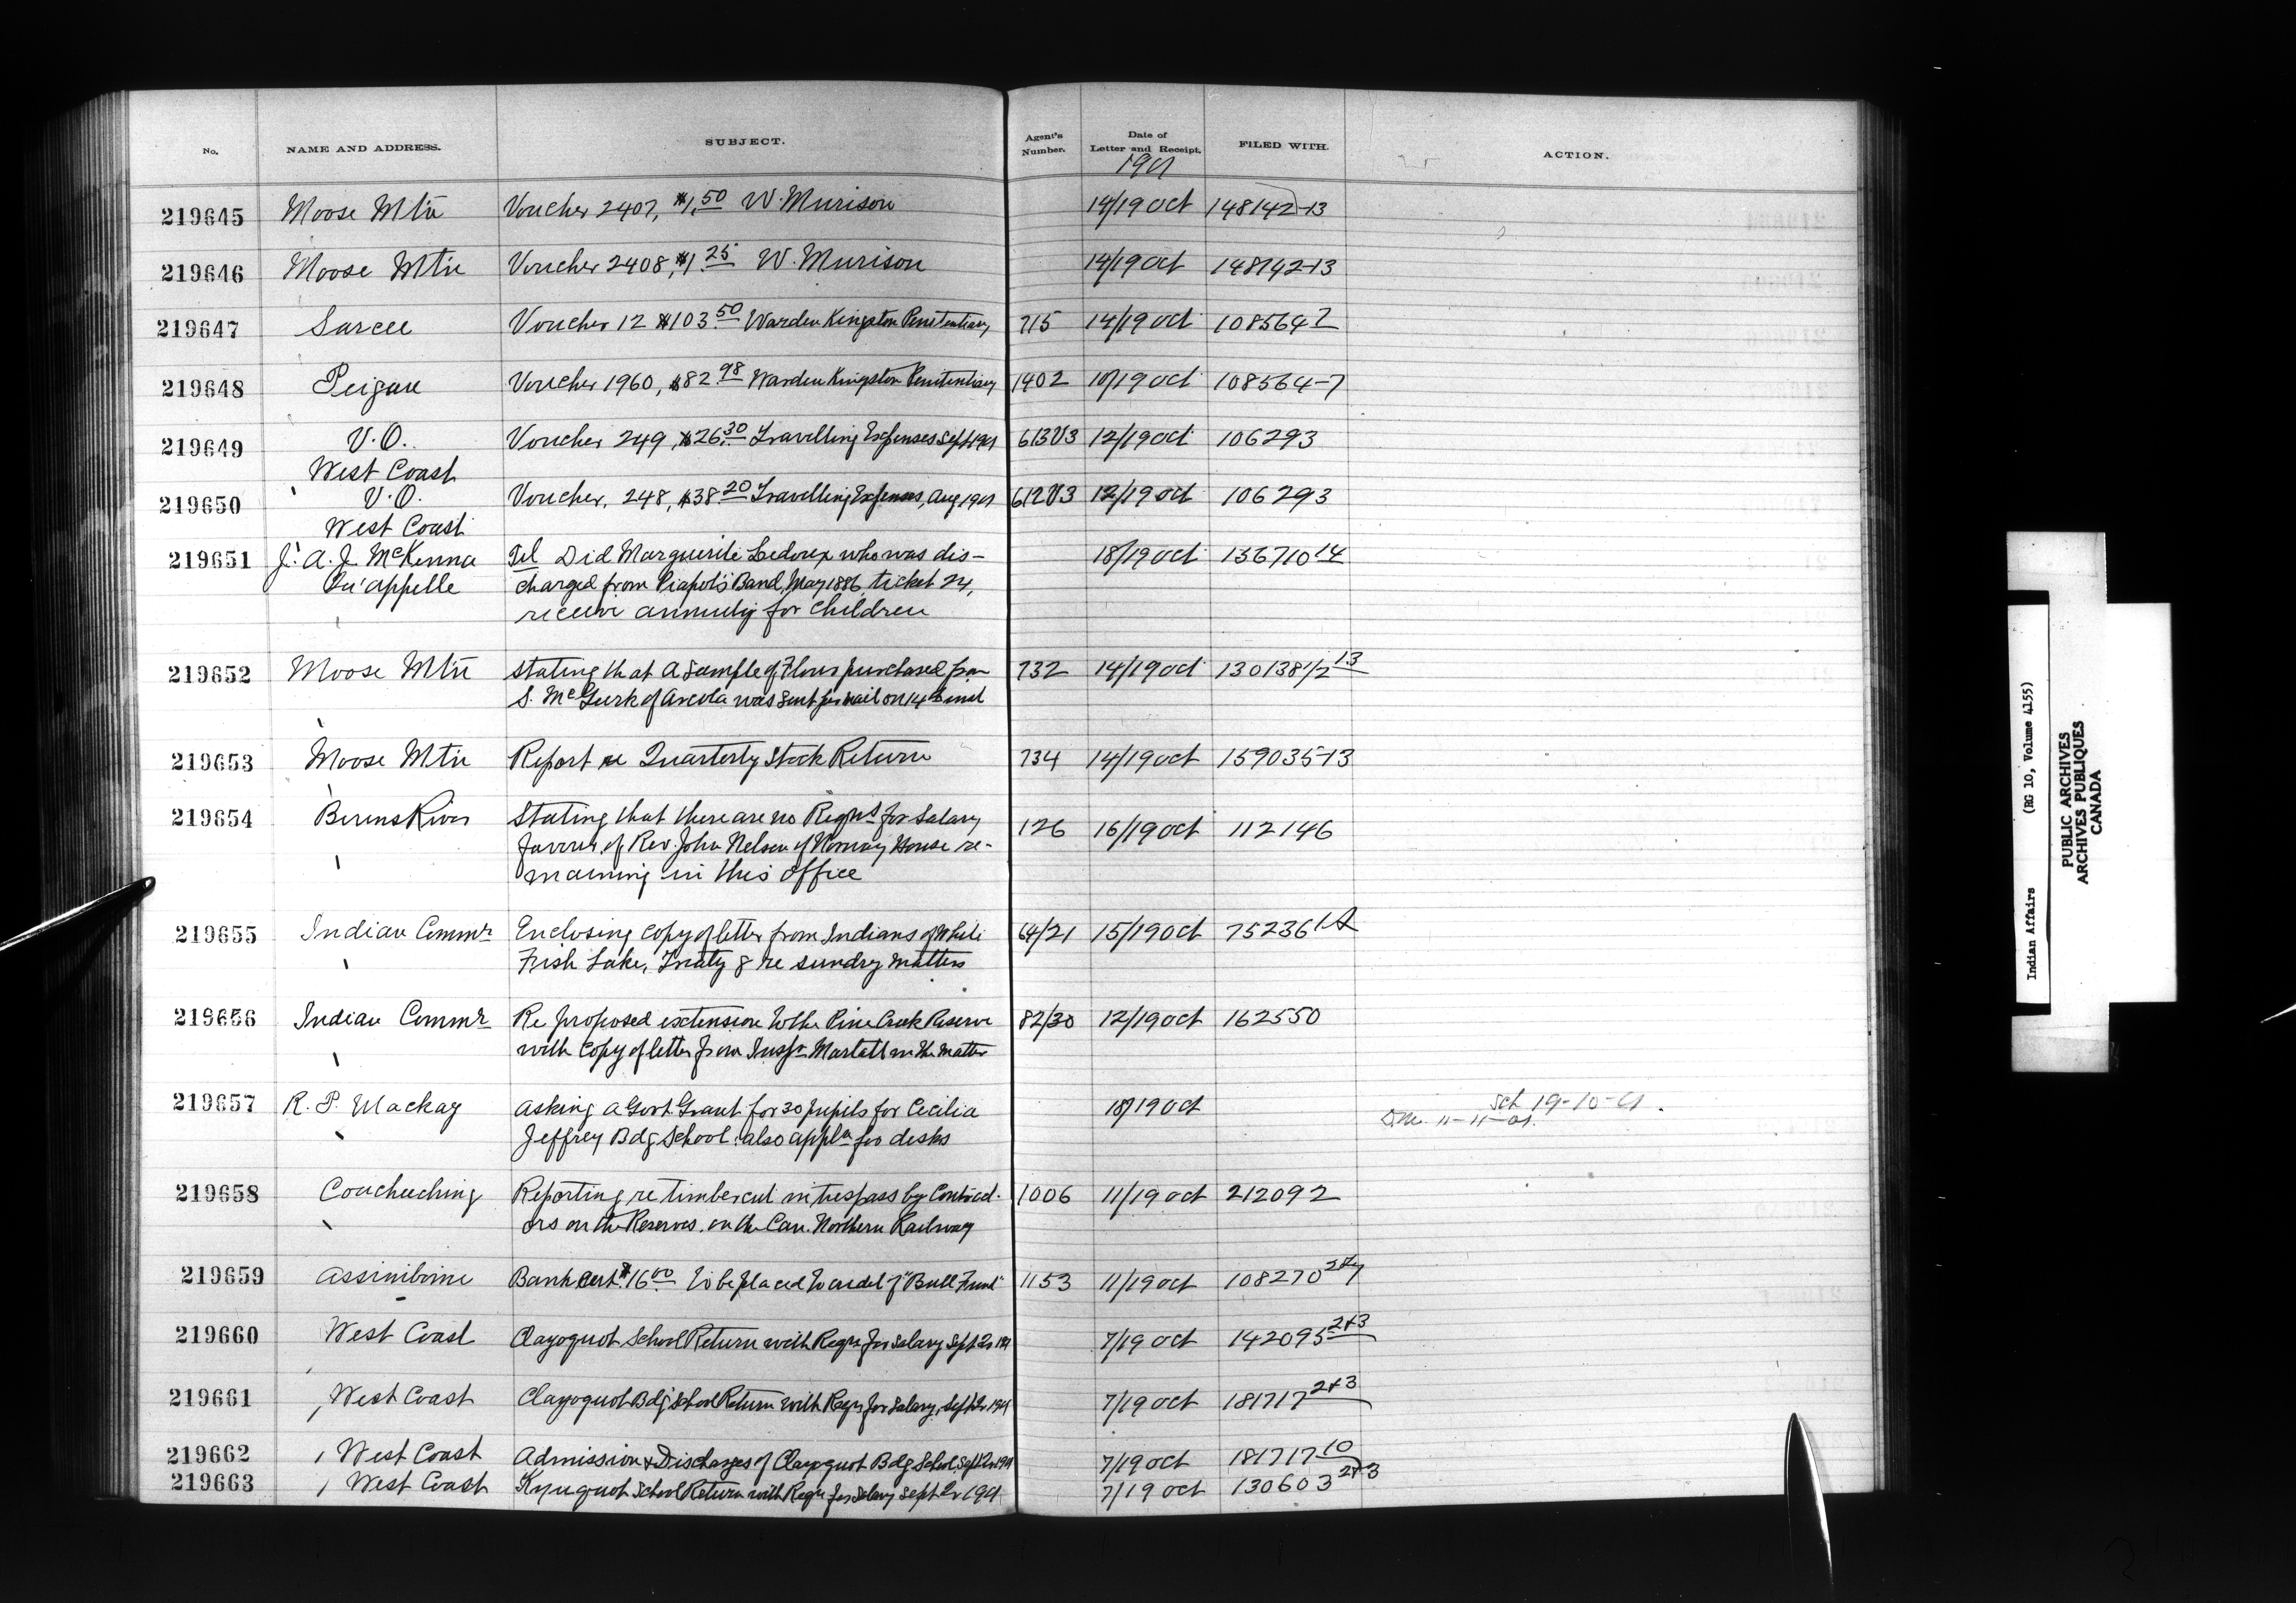 No. NAME AND ADDRESS. SUBJECT. Agent's Number. Date of Letter and Receipt. FILED WITH. ACTION.
1901
219645 Moose Mtn Voucher 2407, $1.50 W. Murison 14/19 Oct 148142-13
219646 Moose Mtn Voucher 2408, $1.25 W. Murison 14/19 Oct 148142-13
219647 Sarcee Voucher 12 $103.50 Warden Kingston Penitentiary 715 14/19 Oct 108564 7
219648 Peigan Voucher 1960, $82.98 Warden Kingston Penitentiary 1402 10/19 Oct 108564-7
219649 V.O. Voucher 249, $26.30 Travelling Expenses Sept 1901 613V3 12/19 Oct 106293
West Coast
219650 V.O. Voucher, 248, $38.20 Travelling Expenses, Aug 1901 612V3 12/19 Oct 106293
West Coast
219651 J. A. J. McKenna Tel Did Marguerite Ledoux who was dis- 18/19 Oct 136710 14
Qu'appelle charged from Piapot's Band, May 1886, ticket 24,
receive annuity for children
219652 Moose Mtn Stating that a Sample of Flour purchased from 732 14/19 Oct 130138 1/2 13
S. McGurk of Arcola was sent per mail on 14th inst
219653 Moose Mtn Report re Quarterly Stock Return 734 14/19 Oct 159035-13
219654 Berens River Stating that there are no Reqns for Salary 126 16/19 Oct 112146
favour of Rev. John Nelson of Norway House re-
maining in this office
219655 Indian Commr Enclosing copy of letter from Indians of White 64/21 15/19 Oct 75236 1A
Fish Lake, Treaty 8 re sundry matters
219656 Indian Commr Re proposed extension to the Pine Creek Reserve 82/30 12/19 Oct 162550
with copy of letter from Inspr Marlatt in the matter
219657 R. P. Mackay Asking a Govt Grant for 30 pupils for Cecilia 18/19 Oct Sch 19-10-01.
Jeffrey Bdg School. also appln for desks 11-11-01.
219658 Coucheeching Reporting re timber cut in trespass by Contract- 1006 11/19 Oct 212092
ors on the Reserves. on the Can. Northern Railway
219659 Assiniboine Bank Cert. $16.00 to be placed to credit of "Bull Fund" 1153 11/19 Oct 108270
219660 West Coast Clayoquot School Return with Reqn for Salary Sept Qr 1901 7/19 Oct 142095 2+3
219661 West Coast Clayoquot Bdg School Return with Reqn for Salary, Sept Qr 1901 7/19 Oct 181717 2+3
219662 West Coast Admission & Discharges of Clayoquot Bdg School Sept Qr 1901 7/19 Oct 181717 10
219663 West Coast Kyuquot School Return with Reqn for Salary Sept Qr 1901 7/19 Oct 130603 2+3
Indian Affairs (RG 10, Volume 4155)
PUBLIC ARCHIVES
ARCHIVES PUBLIQUES
CANADA